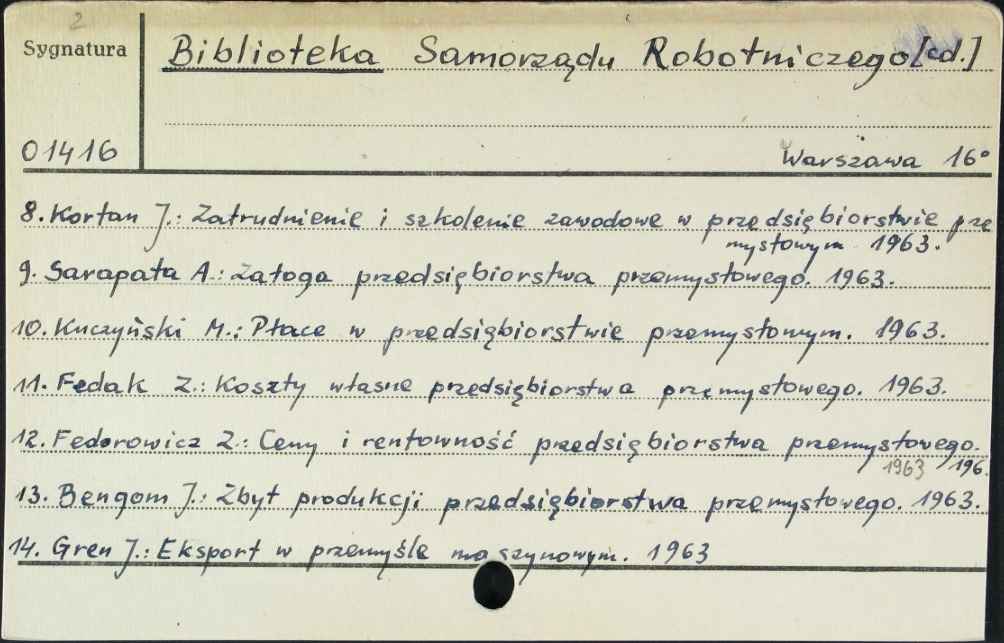 2
Sygnatura
Biblioteka Samorządu Robotniczego [cd.]
01416
Warszawa 16°
8. Kortan J.: Zatrudnienie i szkolenie zawodowe w przedsiębiorstwie prze
mysłowym 1963.
9. Sarapata A.: Załoga przedsiębiorstwa przemysłowego. 1963.
10. Kuczyński M.: Płace w przedsiębiorstwie przemysłowym. 1963.
11. Fedak Z.: Koszty własne przedsiębiorstwa przemysłowego. 1963.
12. Fedorowicz Z.: Ceny i rentowność przedsiębiorstwa przemysłowego.
1963 /196.
13. Bengom J.: Zbyt produkcji przedsiębiorstwa przemysłowego. 1963.
14. Gren J.: Eksport w przemyśle maszynowym. 1963